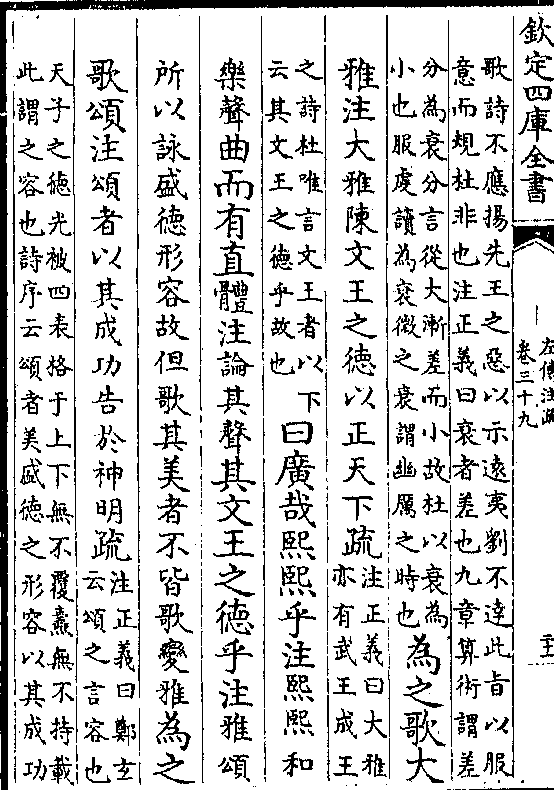 欽定四庫全書
左傳注疏
卷三十九
歌詩不應揚先王之惡以示遠夷劉不達此旨以服
意而規杜非也注正義曰衰者差也九章算術謂差
分為衰分言從大漸差而小故杜以衰為
小也服虔讀為衰微之衰謂幽厲之時也
為之歌大
雅注大雅陳文王之德以正天下疏
注正義曰大雅
亦有武王成王
之詩杜唯言文王者以下
云其文王之德乎故也
曰廣哉熙熙乎注熙熙和
樂聲曲而有直體注論其聲其文王之德乎注雅頌
所以詠盛德形容故但歌其美者不皆歌變雅為之
歌頌注頌者以其成功告於神明疏
注正義曰鄭玄
云頌之言容也
天子之德光被四表格于上下無不覆燾無不持載
此謂之容也詩序云頌者美盛德之形容以其成功